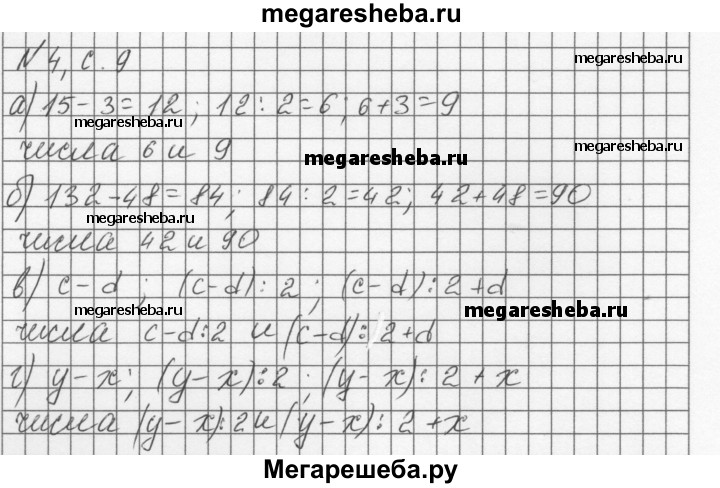 megaresheba.ru
N4, с. 9
megaresheba.ru
а) 15 - 3 = 12 ; 12 : 2 = 6 ; 6 + 3 = 9
megaresheba.ru
числа 6 и 9
megaresheba.ru
б) 132 - 48 = 84; 84 : 2 = 42; 42 + 48 = 90
megaresheba.ru
числа 42 и 90
в) c - d ; (c - d) : 2 ; (c - d) : 2 + d
megaresheba.ru
megaresheba.ru
числа c - d : 2 и (c - d) : 2 + d
г) y - x; (y - x) : 2 ; (y - x) : 2 + x
числа (y - x) : 2 и (y - x) : 2 + x
Мегарешеба.ру